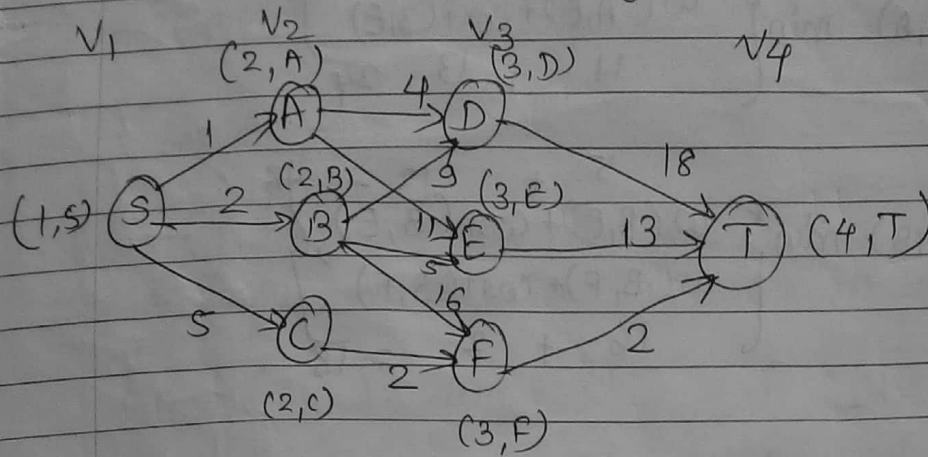 V1 V2 V3 V4
(2,A) (3,D)
1 A 4 D 18
(2,B) 9 (3,E)
(1,S) S 2 B 11 E 13 T (4,T)
5
16
5 C 2 F 2
(2,C)
(3,F)